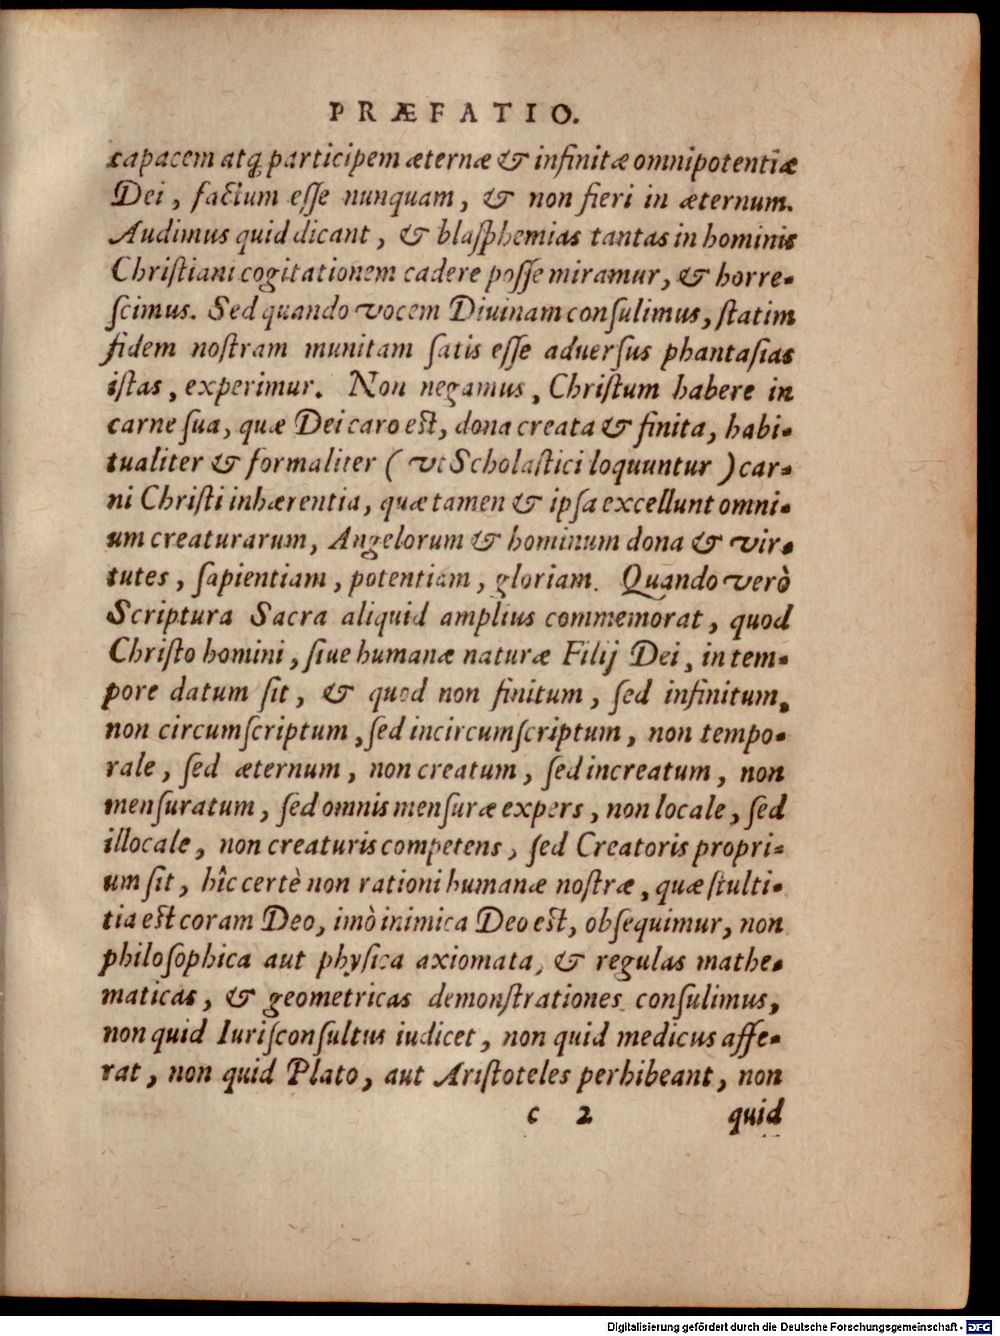 PRÆFATIO.
capacem atq́; participem æternæ & infinitæ omnipotentiæ
Dei, factum eſſe nunquam, & non fieri in æternum.
Audimus quid dicant, & blaſphemias tantas in hominis
Chriſtiani cogitationem cadere poſſe miramur, & horre-
ſcimus. Sed quando vocem Diuinam conſulimus, ſtatim
fidem noſtram munitam ſatis eſſe aduerſus phantaſias
iſtas, experimur. Non negamus, Chriſtum habere in
carne ſua, quæ Dei caro eſt, dona creata & finita, habi-
tualiter & formaliter (vt Scholaſtici loquuntur) car-
ni Chriſti inhærentia, quæ tamen & ipſa excellunt omni-
um creaturarum, Angelorum & hominum dona & vir-
tutes, ſapientiam, potentiam, gloriam. Quando verò
Scriptura Sacra aliquid amplius commemorat, quod
Chriſto homini, ſiue humanæ naturæ Filij Dei, in tem-
pore datum ſit, & quod non finitum, ſed infinitum,
non circumſcriptum, ſed incircumſcriptum, non tempo-
rale, ſed æternum, non creatum, ſed increatum, non
menſuratum, ſed omnis menſuræ expers, non locale, ſed
illocale, non creaturis competens, ſed Creatoris propri-
um ſit, hîc certè non rationi humanæ noſtræ, quæ ſtulti-
tia eſt coram Deo, imò inimica Deo eſt, obſequimur, non
philoſophica aut phyſica axiomata, & regulas mathe-
maticas, & geometricas demonſtrationes conſulimus,
non quid Iuriſconſultus iudicet, non quid medicus affe-
rat, non quid Plato, aut Ariſtoteles perhibeant, non
c 2 quid
Digitalisierung gefördert durch die Deutsche Forschungsgemeinschaft - DFG